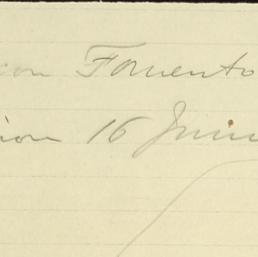 con Fomento
ion 16 Junio